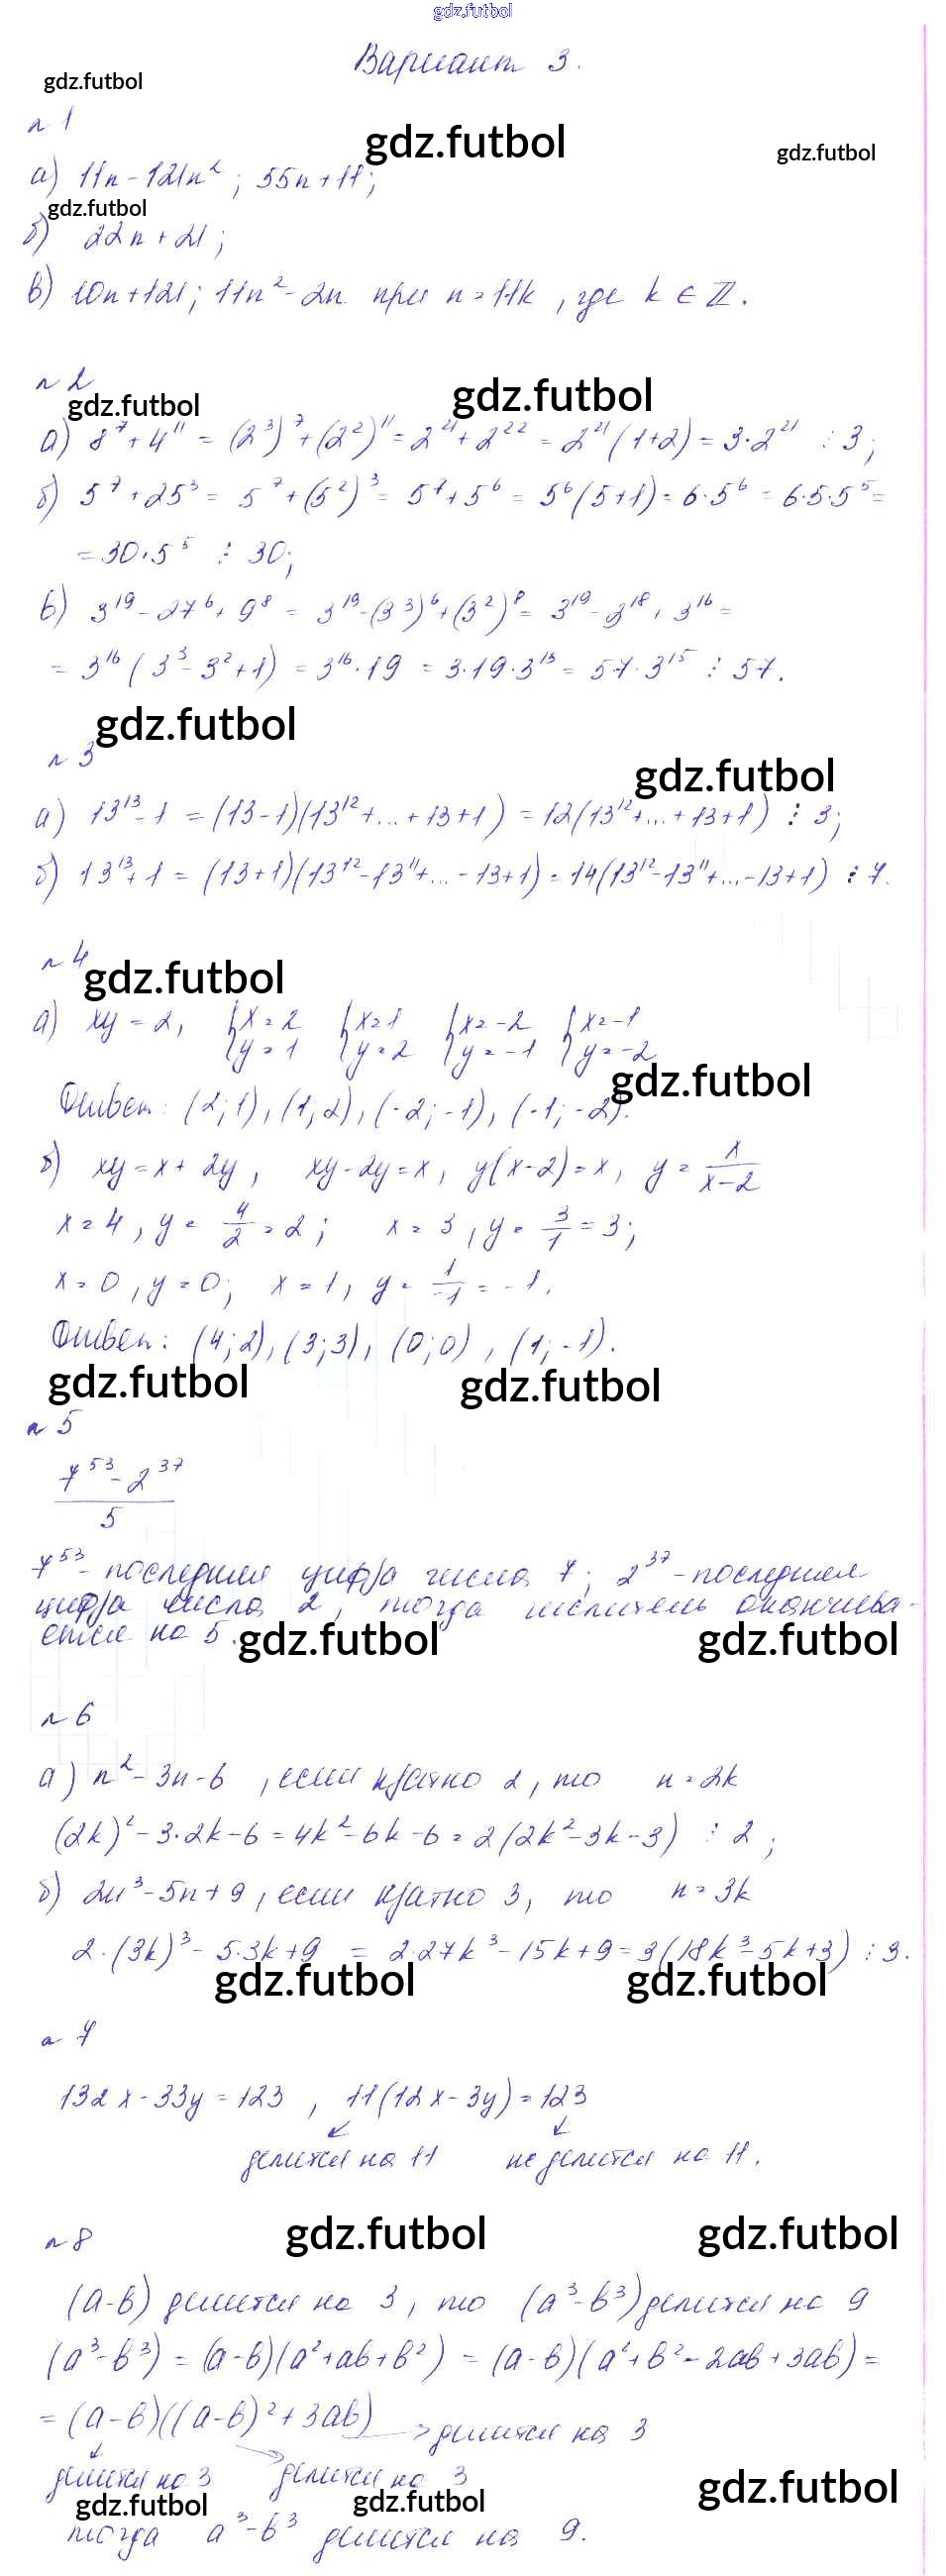 gdz.futbol
Вариант 3.
gdz.futbol
n 1
gdz.futbol
gdz.futbol
а) 11n - 121n² ; 55n + 11 ;
gdz.futbol
б) 22n + 21 ;
в) 10n + 121 ; 11n² - 2n при n = 11k , где k ∈ ℤ .
n 2
gdz.futbol
gdz.futbol
а) 8⁷ + 4¹¹ = (2³)⁷ + (2²)¹¹ = 2²¹ + 2²² = 2²¹ (1+2) = 3·2²¹ ⋮ 3 ;
б) 5⁷ + 25³ = 5⁷ + (5²)³ = 5⁷ + 5⁶ = 5⁶ (5+1) = 6·5⁶ = 6·5·5⁵ =
= 30·5⁵ ⋮ 30 ;
в) 3¹⁹ - 27⁶ + 9⁸ = 3¹⁹ - (3³)⁶ + (3²)⁸ = 3¹⁹ - 3¹⁸ + 3¹⁶ =
= 3¹⁶ (3³ - 3² + 1) = 3¹⁶·19 = 3·19·3¹⁵ = 57·3¹⁵ ⋮ 57 .
gdz.futbol
n 3
gdz.futbol
а) 13¹³ - 1 = (13-1)(13¹² + ... + 13 + 1) = 12(13¹² + ... + 13 + 1) ⋮ 3 ;
б) 13¹³ + 1 = (13+1)(13¹² - 13¹¹ + ... - 13 + 1) = 14(13¹² - 13¹¹ + ... - 13 + 1) ⋮ 7.
n 4
gdz.futbol
а) xy = 2 , { x = 2 { x = 1 { x = -2 { x = -1
y = 1 y = 2 y = -1 y = -2
gdz.futbol
Ответ: (2; 1), (1; 2), (-2; -1), (-1; -2).
б) xy = x + 2y , xy - 2y = x , y(x-2) = x , y = x/(x-2)
x = 4 , y = 4/2 = 2 ; x = 3 , y = 3/1 = 3 ;
x = 0 , y = 0 ; x = 1 , y = 1/-1 = -1 .
Ответ: (4; 2), (3; 3), (0; 0) , (1; -1).
gdz.futbol
gdz.futbol
n 5
(7⁵³ - 2³⁷)/5
7⁵³ - последняя цифра числа 7 ; 2³⁷ - последняя
цифра числа 2 , тогда числитель оканчива-
ется на 5 .
gdz.futbol
gdz.futbol
n 6
а) n² - 3n - 6 , если кратно 2 , то n = 2k
(2k)² - 3·2k - 6 = 4k² - 6k - 6 = 2(2k² - 3k - 3) ⋮ 2 ;
б) 2n³ - 5n + 9 , если кратно 3 , то n = 3k
2·(3k)³ - 5·3k + 9 = 2·27k³ - 15k + 9 = 3(18k³ - 5k + 3) ⋮ 3 .
gdz.futbol
gdz.futbol
n 7
132x - 33y = 123 , 11(12x - 3y) = 123
↙ ↓
делится на 11 не делится на 11 .
gdz.futbol
gdz.futbol
n 8
(a-b) делится на 3 , то (a³ - b³) делится на 9
(a³ - b³) = (a-b)(a² + ab + b²) = (a-b)(a² + b² - 2ab + 3ab) =
= (a-b)((a-b)² + 3ab) → делится на 3
делится на 3 делится на 3
gdz.futbol
gdz.futbol
gdz.futbol
тогда a³ - b³ делится на 9 .